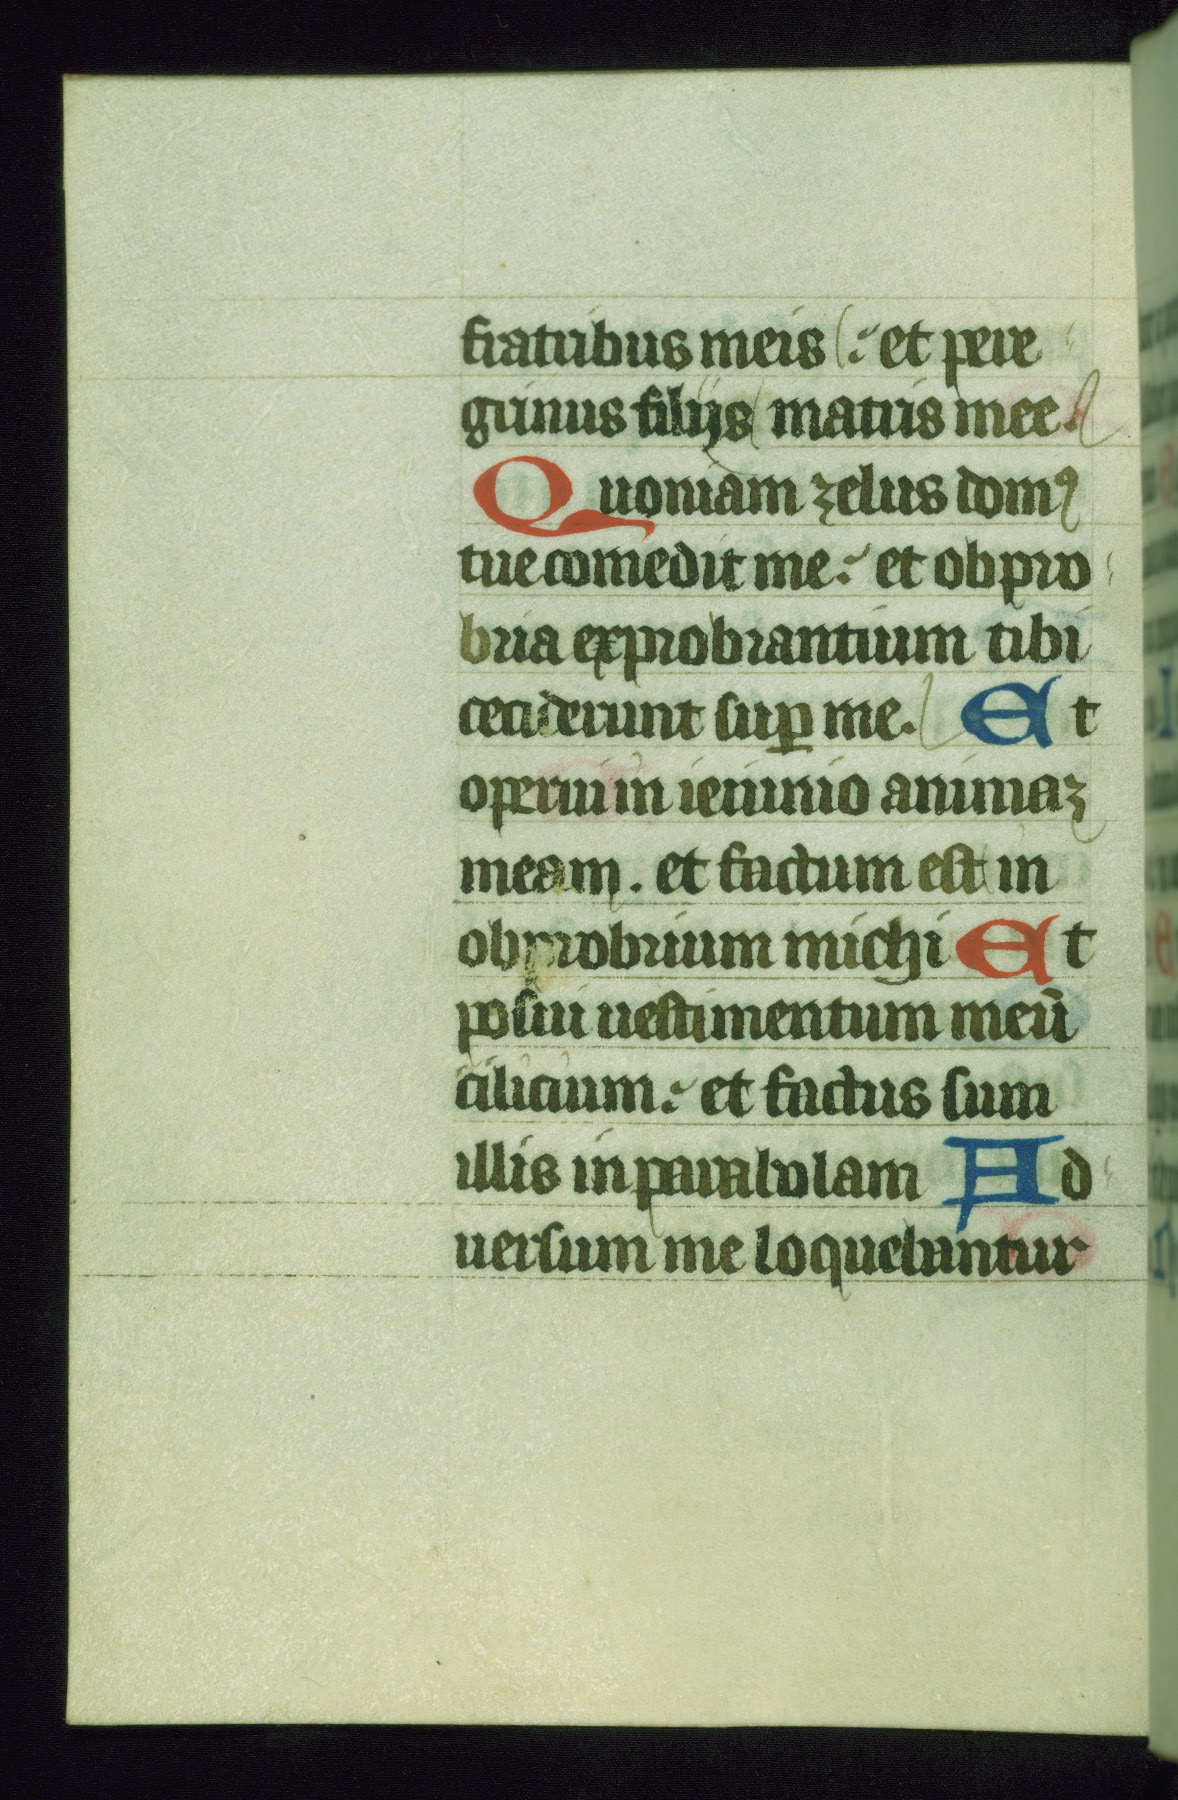 fratribus meis : et pere
grinus filijs matris mee.
Quoniam zelus domꝰ
tue comedit me : et obpro
bria exprobrantium tibi
ceciderunt suꝑ me. Et
operui in ieiunio animaʒ
meam . et factum est in
obprobrium michi Et
posui uestimentum meū
cilicium : et factus sum
illis in parabolam Ad
uersum me loquebantur